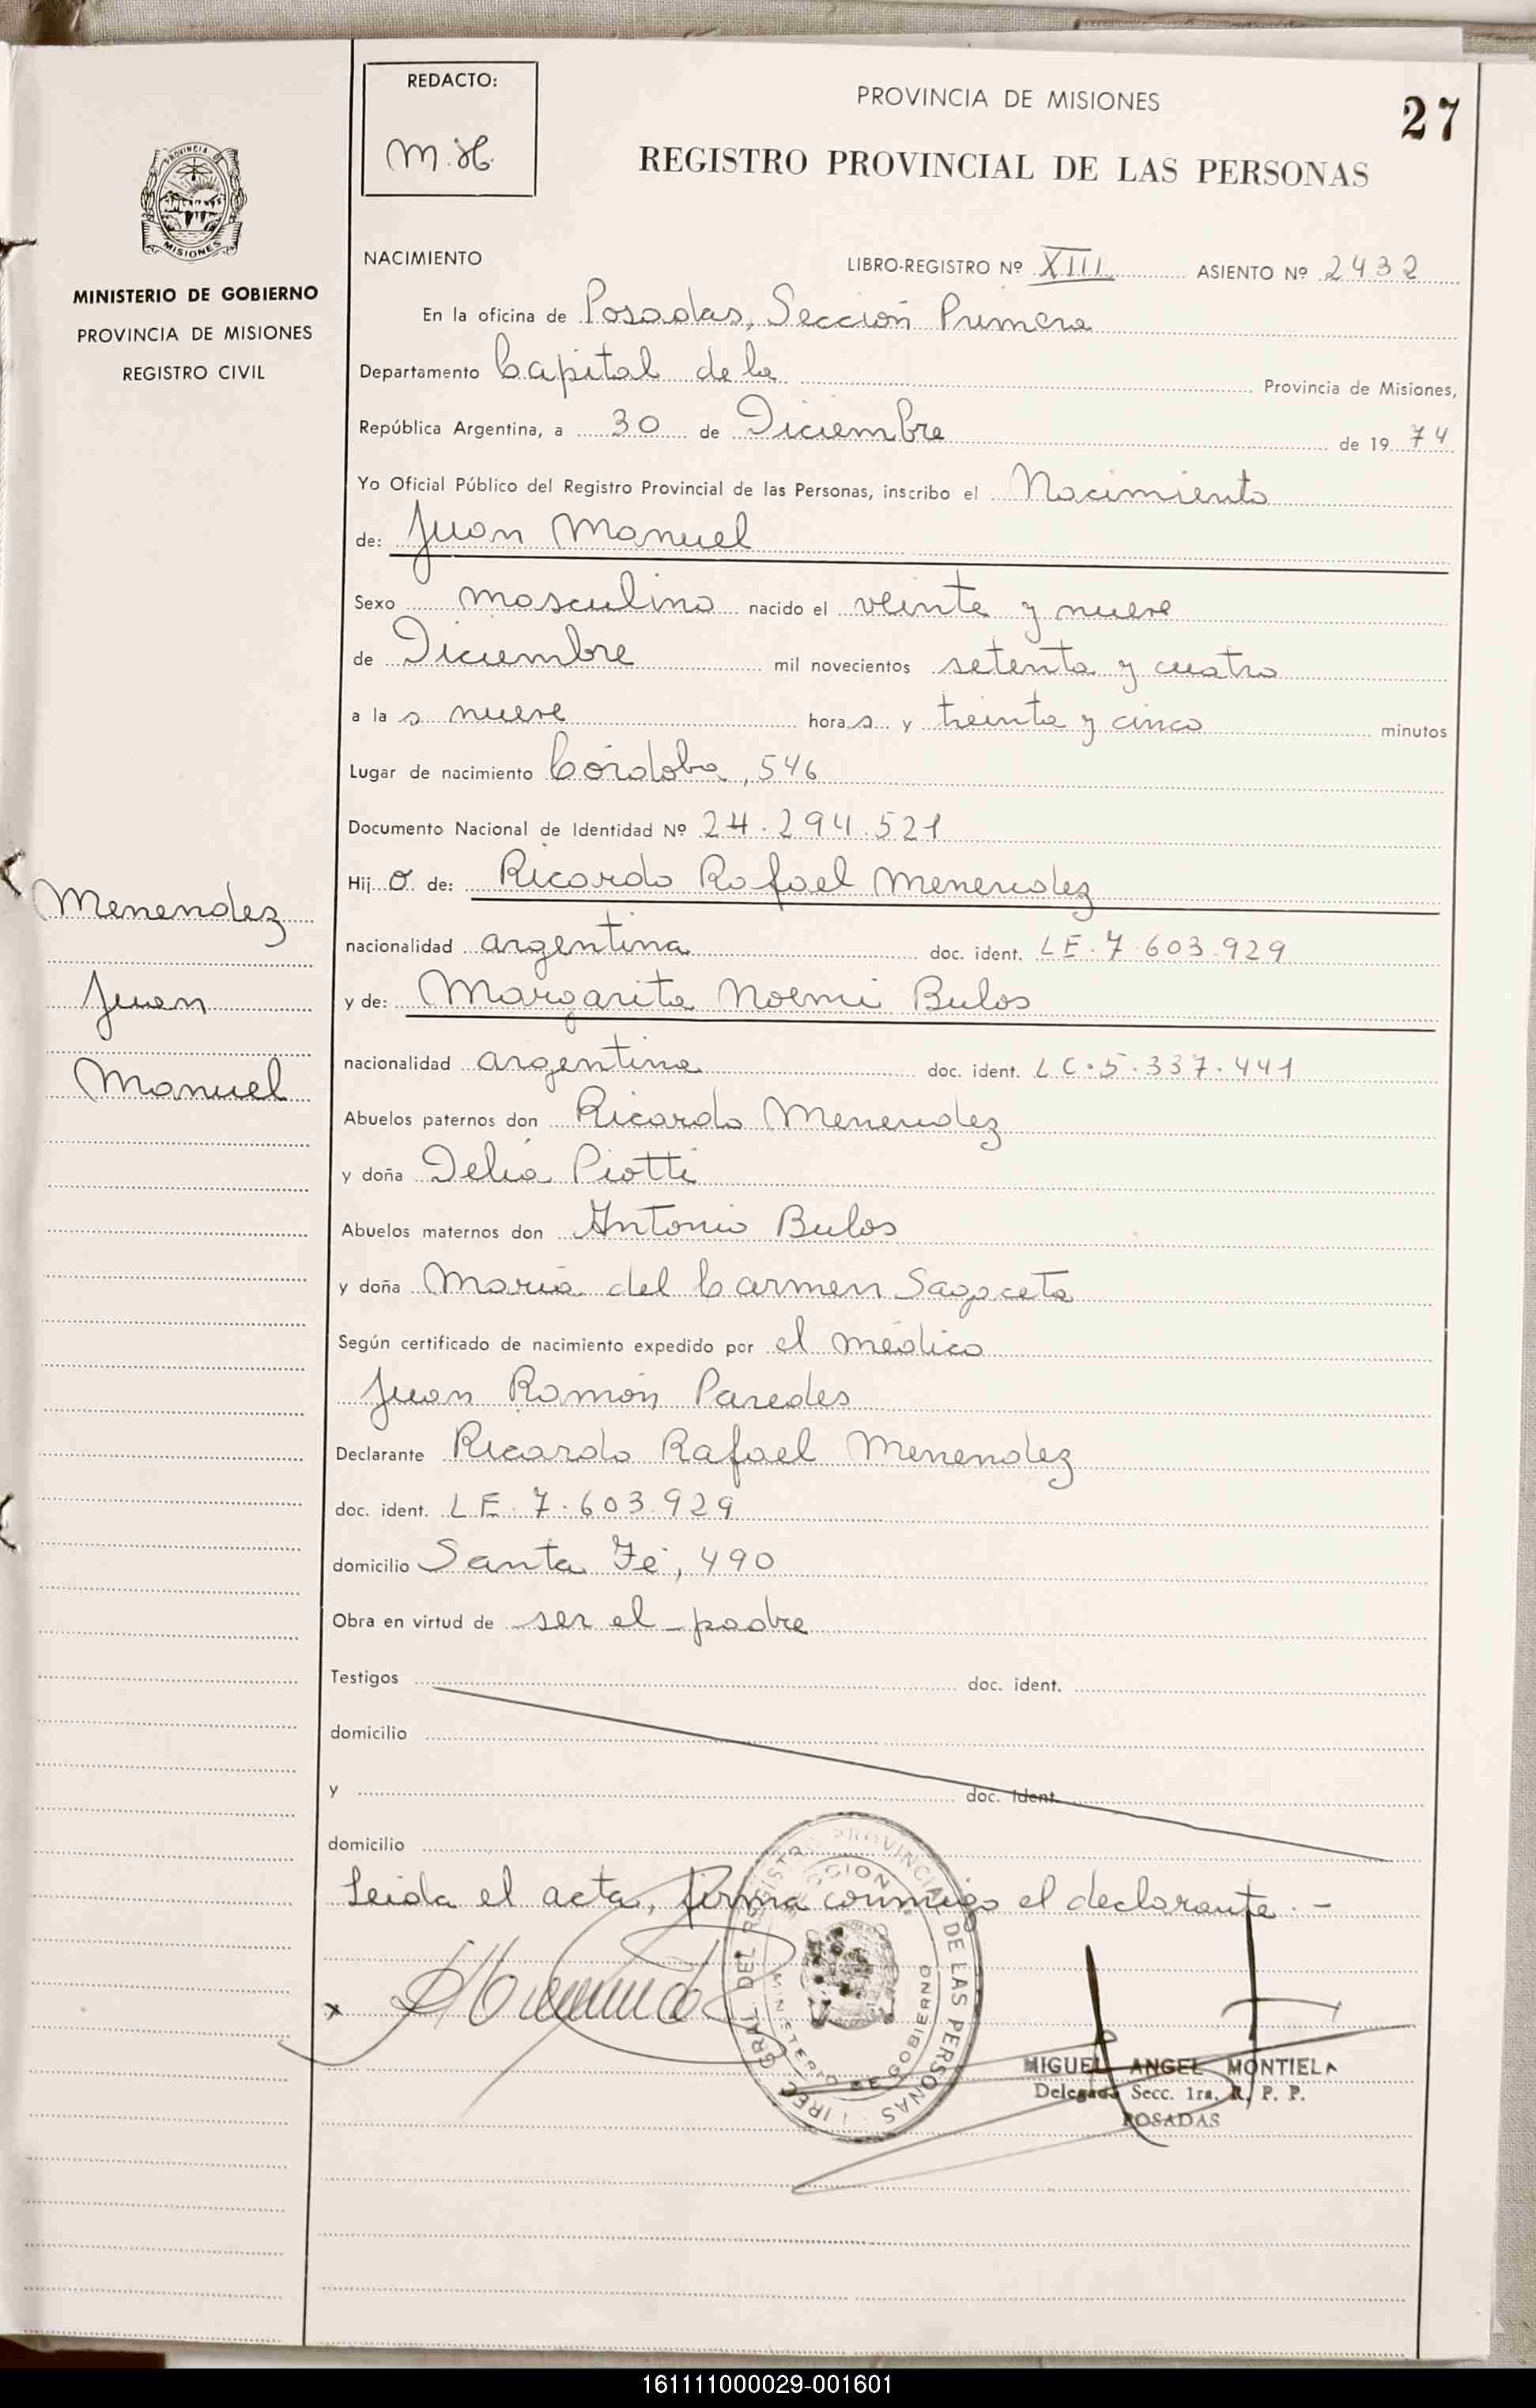 REDACTO:
M.H.
PROVINCIA DE MISIONES
27
REGISTRO PROVINCIAL DE LAS PERSONAS
PROVINCIA DE
MISIONES
MINISTERIO DE GOBIERNO
PROVINCIA DE MISIONES
REGISTRO CIVIL
NACIMIENTO
LIBRO-REGISTRO Nº XIII ASIENTO Nº 2432
En la oficina de Posadas, Sección Primera
Departamento Capital de la Provincia de Misiones,
República Argentina, a 30 de Diciembre de 1974
Yo Oficial Público del Registro Provincial de las Personas, inscribo el Nacimiento
de: Juan Manuel
Sexo masculino nacido el veinte y nueve
de Diciembre mil novecientos setenta y cuatro
a la s nueve hora s y treinta y cinco minutos
Lugar de nacimiento Córdoba, 546
Documento Nacional de Identidad Nº 24.294.521
Hij o de: Ricardo Rafael Menendez
nacionalidad argentina doc. ident. LE.7.603.929
y de: Margarita Noemi Bulos
nacionalidad argentina doc. ident. LC.5.337.441
Menendez
Juan
Manuel
Abuelos paternos don Ricardo Menendez
y doña Delia Piotti
Abuelos maternos don Antonio Bulos
y doña María del Carmen Sagaceta
Según certificado de nacimiento expedido por el médico
Juan Ramón Paredes
Declarante Ricardo Rafael Menendez
doc. ident. LE.7.603.929
domicilio Santa Fé, 490
Obra en virtud de ser el padre
Testigos doc. ident.
domicilio
y doc. ident.
domicilio
Leida el acta, firma conmigo el declarante.-
x
DEL REGISTRO PROVINCIAL DE LAS PERSONAS
MINISTERIO DE GOBIERNO
MIGUEL ANGEL MONTIEL
Delegado Secc. 1ra. R. P. P.
POSADAS
161111000029-001601